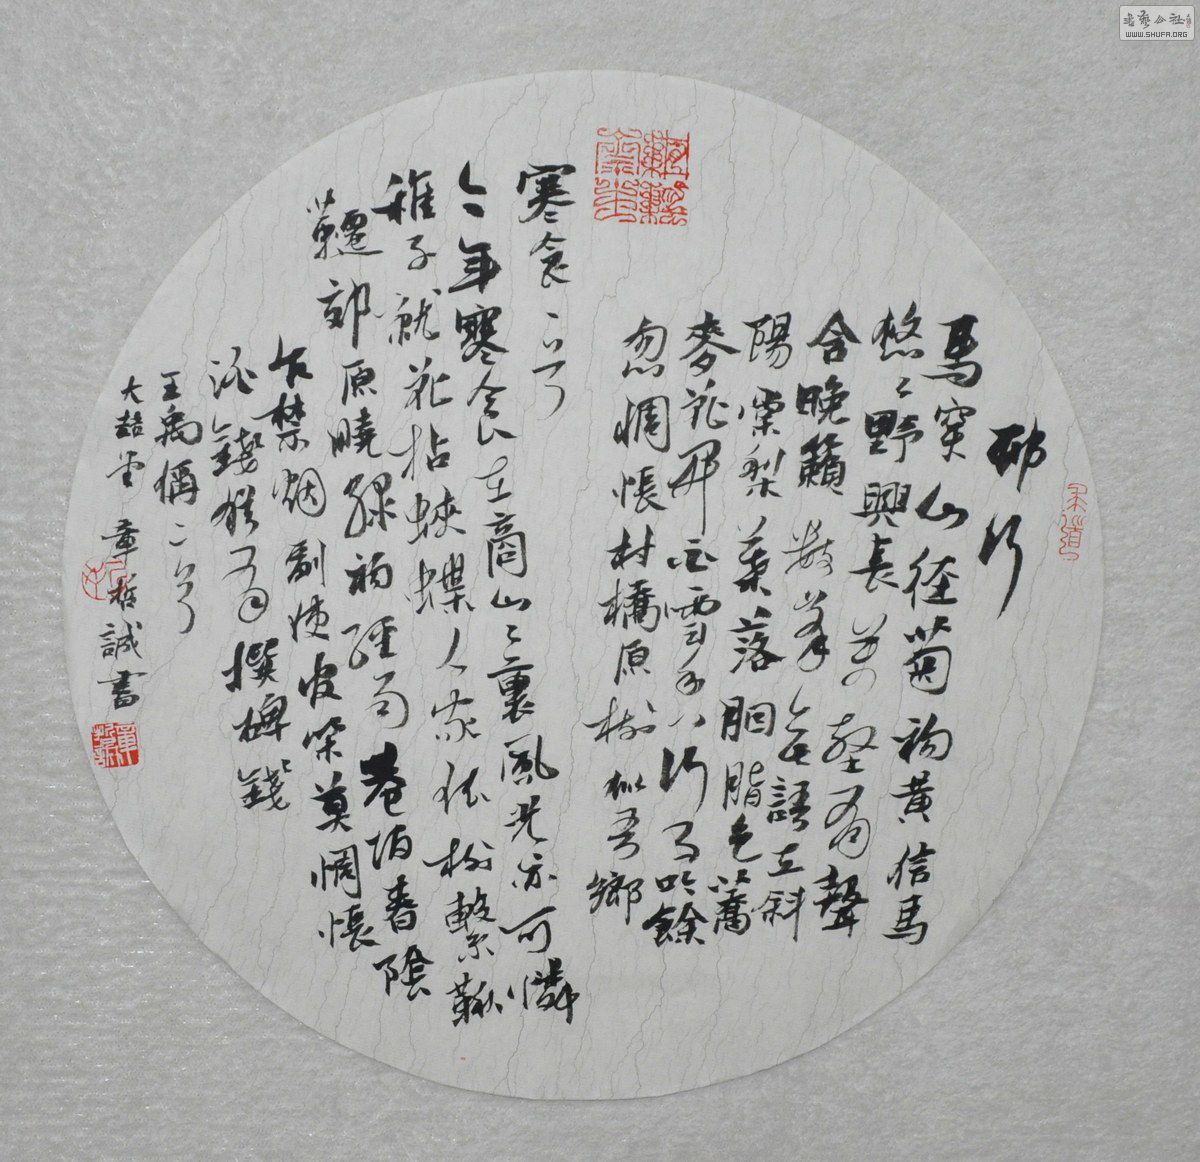 邨行
馬穿山徑菊初黃信馬
悠〻野興長萬壑有聲
含晚籟數峯無語立斜
陽棠梨葉落胭脂色蕎
麥花開白雪香何事吟餘
忽惆悵村橋原樹似吾鄉
寒食
今年寒食在商山〻裏風光亦可憐
稚子就花拈蛺蝶人家依樹繫鞦
韆郊原曉綠初經雨巷陌春陰
乍禁烟副使官閑莫惆悵
酒錢猶有撰碑錢
王禹偁二首
大喆堂 章哲誠書
WWW.SHUFA.ORG